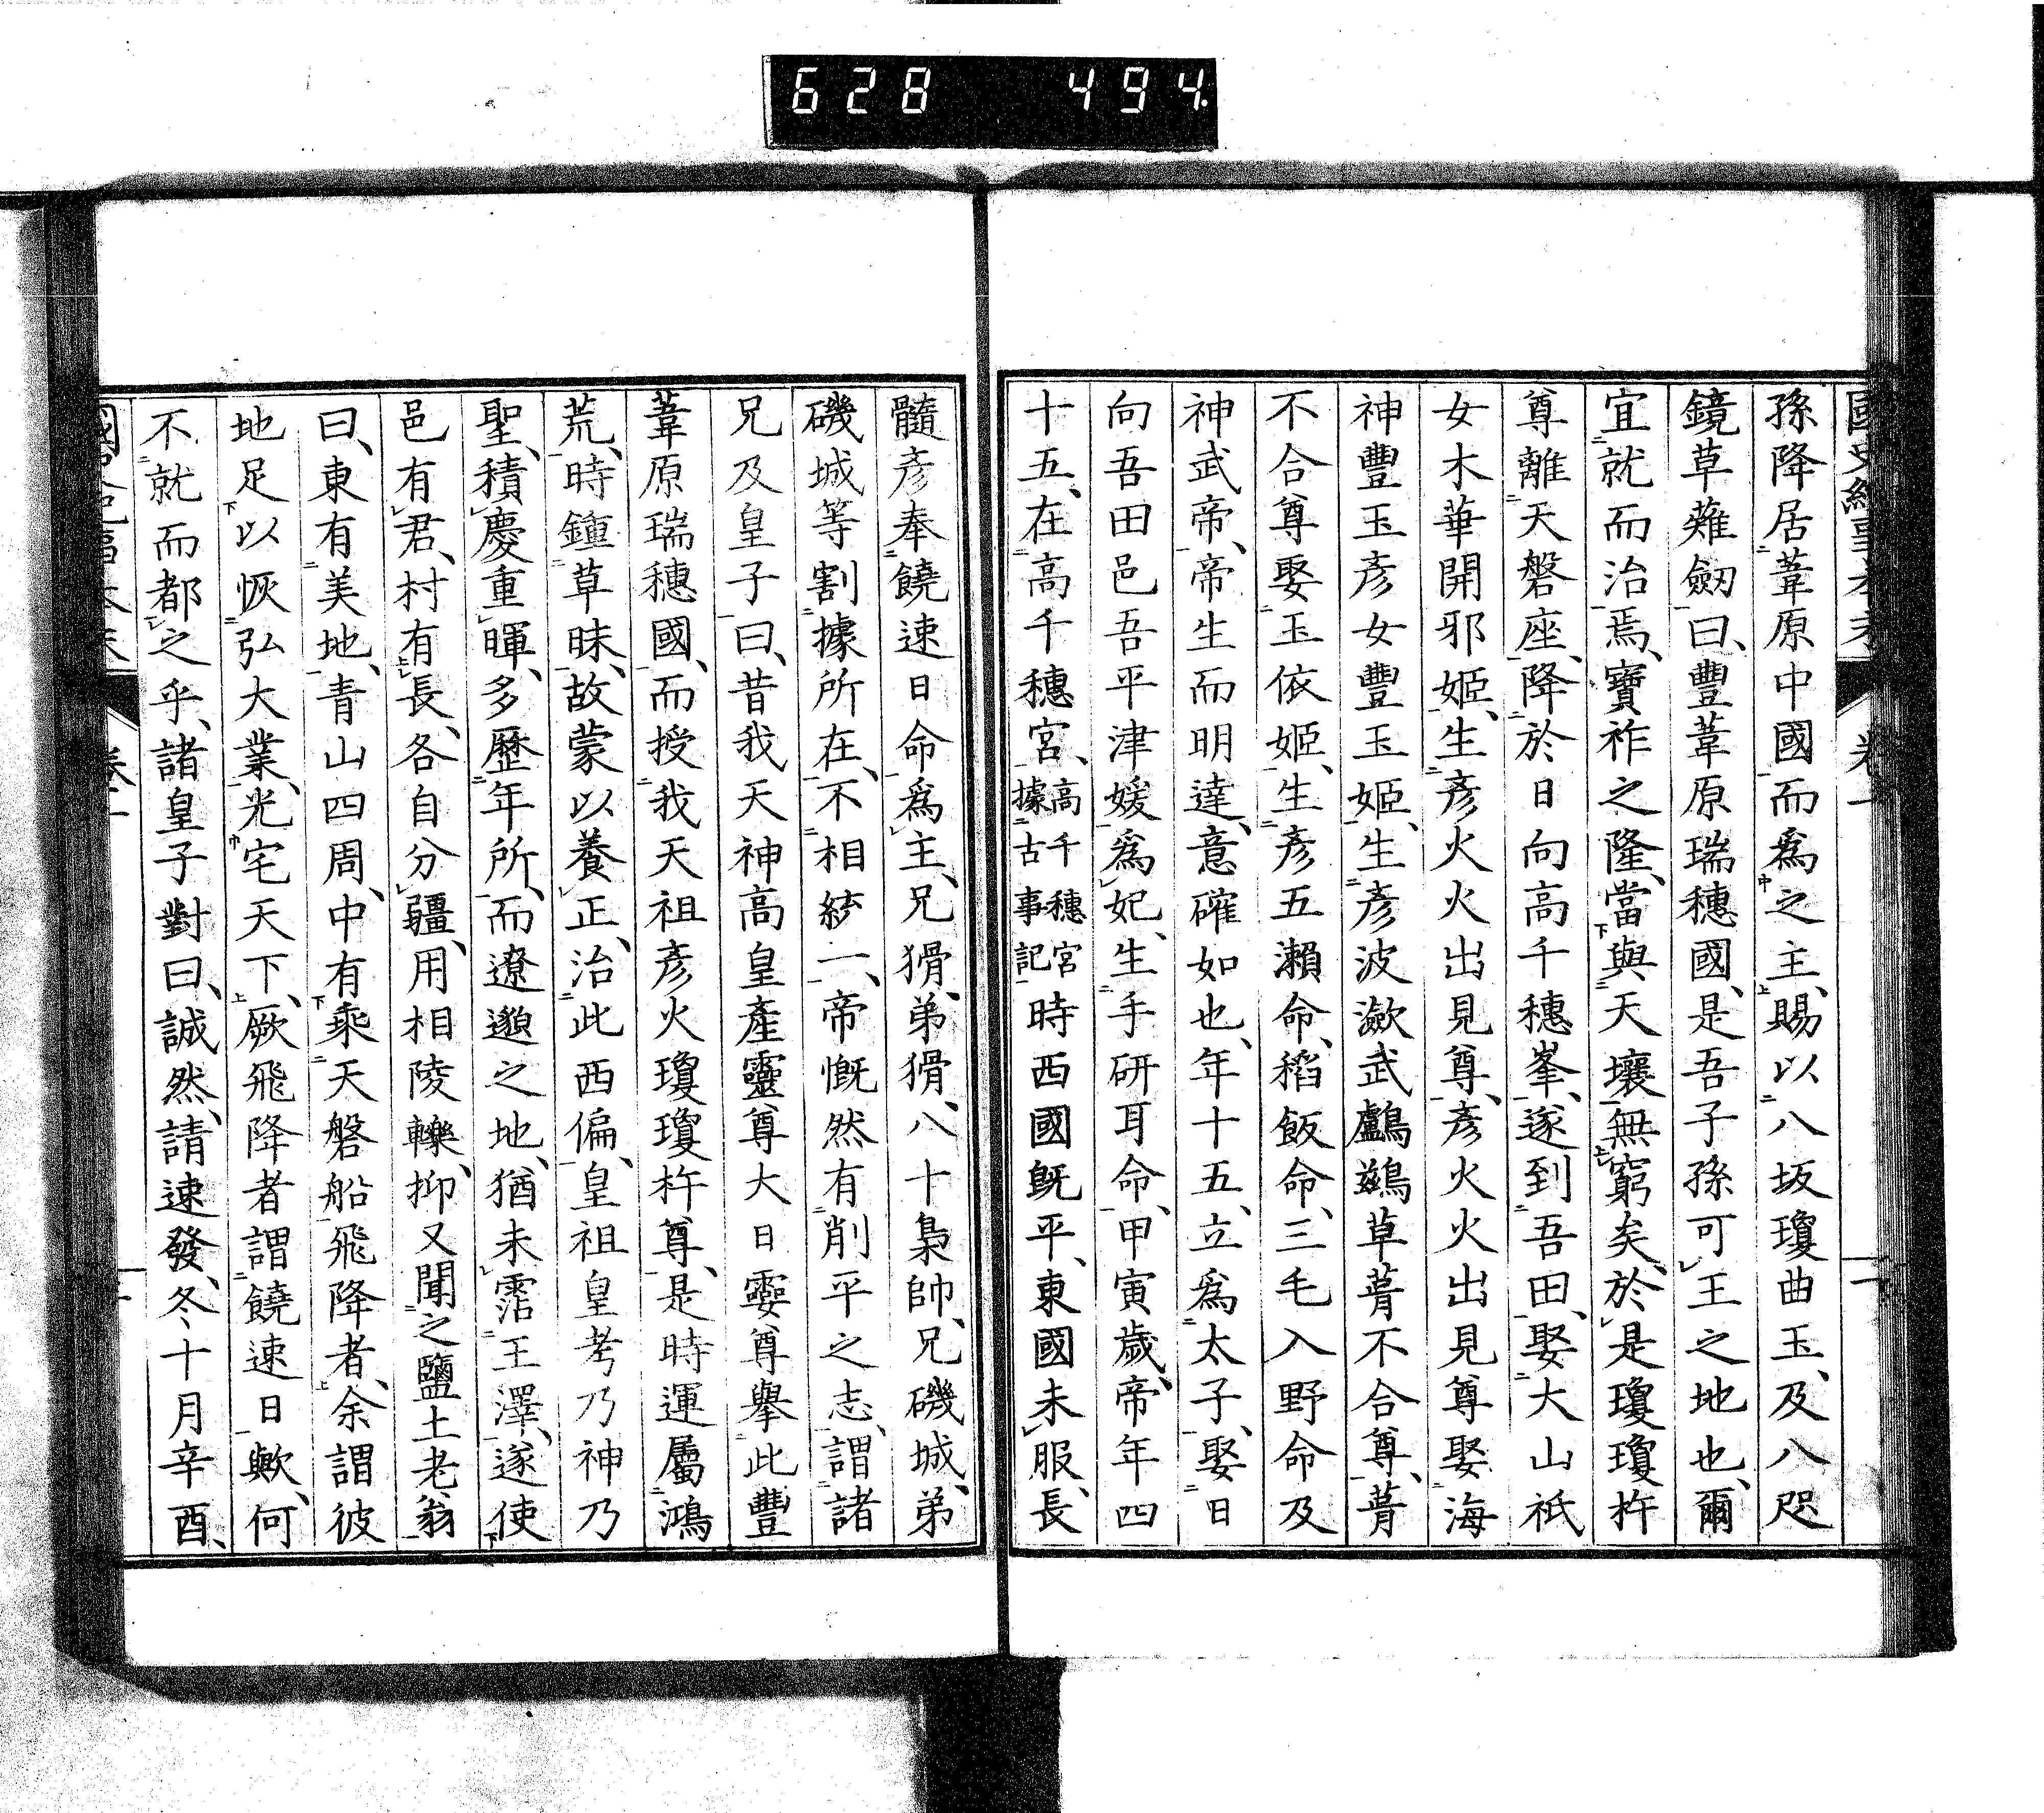 628 494.
孫降居葦原中國而爲之主、賜以八坂瓊曲玉、及八咫
鏡草薙劒曰、豐葦原瑞穗國、是吾子孫可王之地也、爾
宜就而治焉、寶祚之隆、當與天壤無窮矣、於是瓊瓊杵
尊離天磐座、降於日向高千穗峯、遂到吾田、娶大山祇
女木華開邪姬、生彥火火出見尊、彥火火出見尊娶海
神豐玉彥女豐玉姬、生彥波瀲武鸕鷀草葺不合尊、葺
不合尊娶玉依姬、生彥五瀨命、稻飯命、三毛入野命及
神武帝、帝生而明達、意確如也、年十五、立爲太子、娶日
向吾田邑吾平津媛爲妃、生手研耳命、甲寅歲、帝年四
十五、在高千穗宮、高千穗宮據古事記時西國既平、東國未服、長
髓彥奉饒速日命爲主、兄猾、弟猾、八十梟帥、兄磯城、弟
磯城等割據所在、不相統一、帝慨然有削平之志、謂諸
兄及皇子曰、昔我天神高皇產靈尊大日孁尊擧此豐
葦原瑞穗國、而授我天祖彥火瓊瓊杵尊、是時運屬鴻
荒、時鍾草昧、故蒙以養正、治此西偏、皇祖皇考乃神乃
聖、積慶重暉、多歷年所、而遼邈之地、猶未霑王澤、遂使
邑有君、村有長、各自分疆、用相陵轢、抑又聞之鹽土老翁
曰、東有美地、青山四周、中有乘天磐船飛降者、余謂彼
地足以恢弘大業、光宅天下、厥飛降者謂饒速日歟、何
不就而都之乎、諸皇子對曰、誠然、請速發、冬十月辛酉、